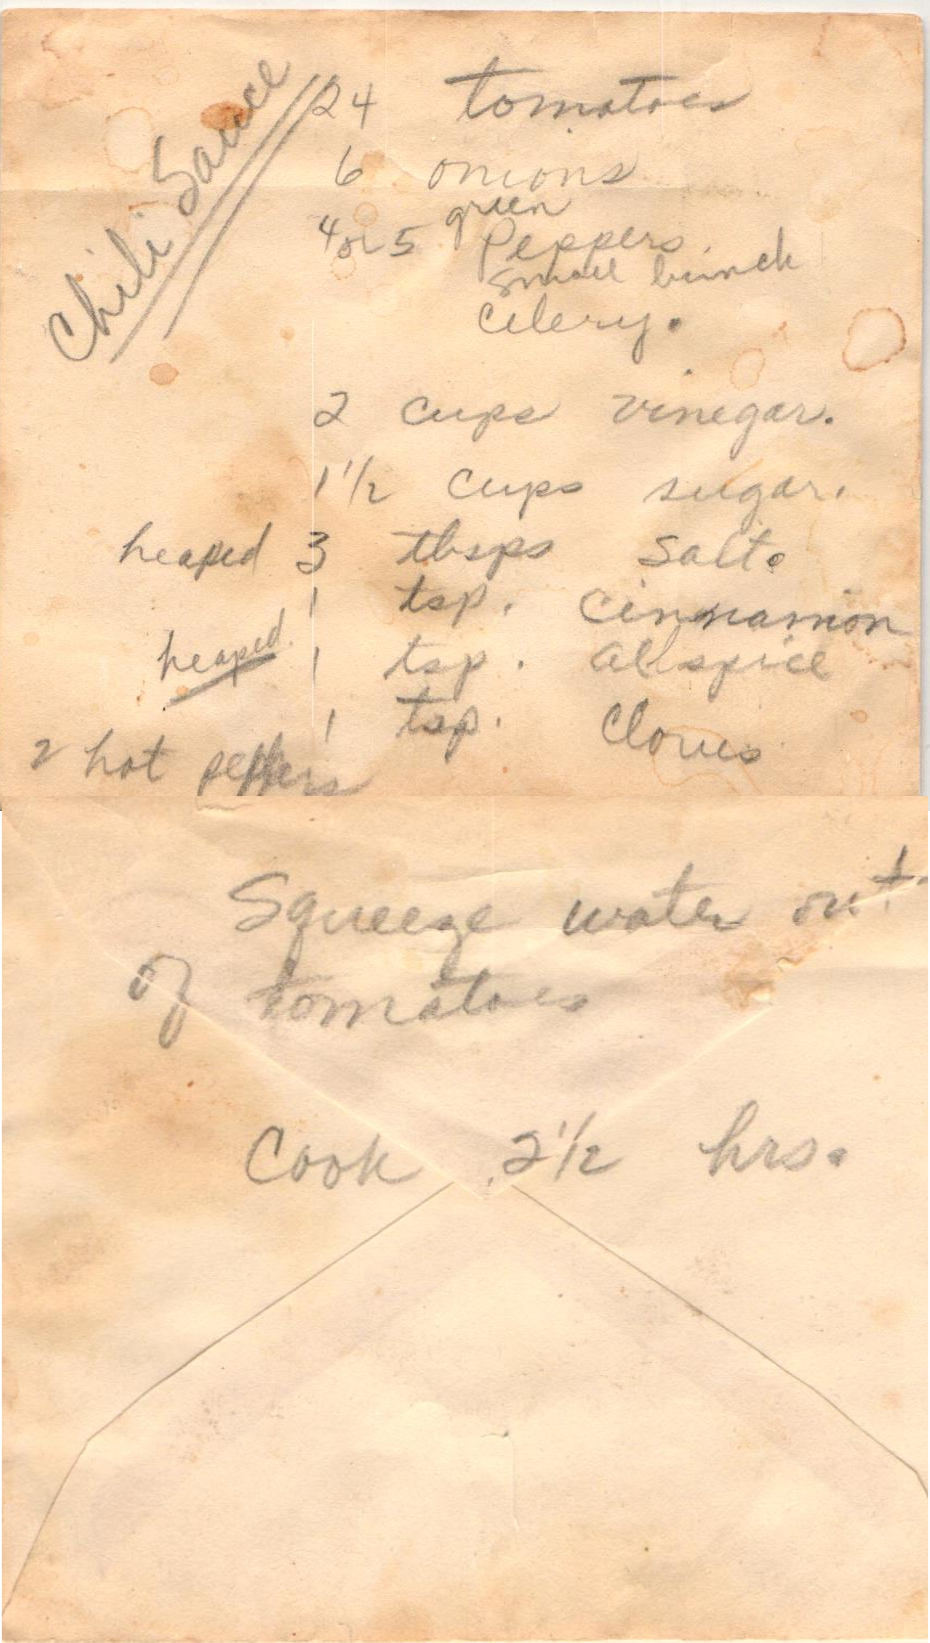 Chili Sauce
24 tomatoes
6 onions
green
4 or 5 Peppers.
small bunch
Celery.
2 cups vinegar.
1 1/2 cups sugar.
heaped 3 tbsps Salt.
1 tsp. Cinnamon
heaped 1 tsp. allspice
1 tsp. Cloves
2 hot peppers
Squeeze water out
of tomatoes
Cook 2 1/2 hrs.